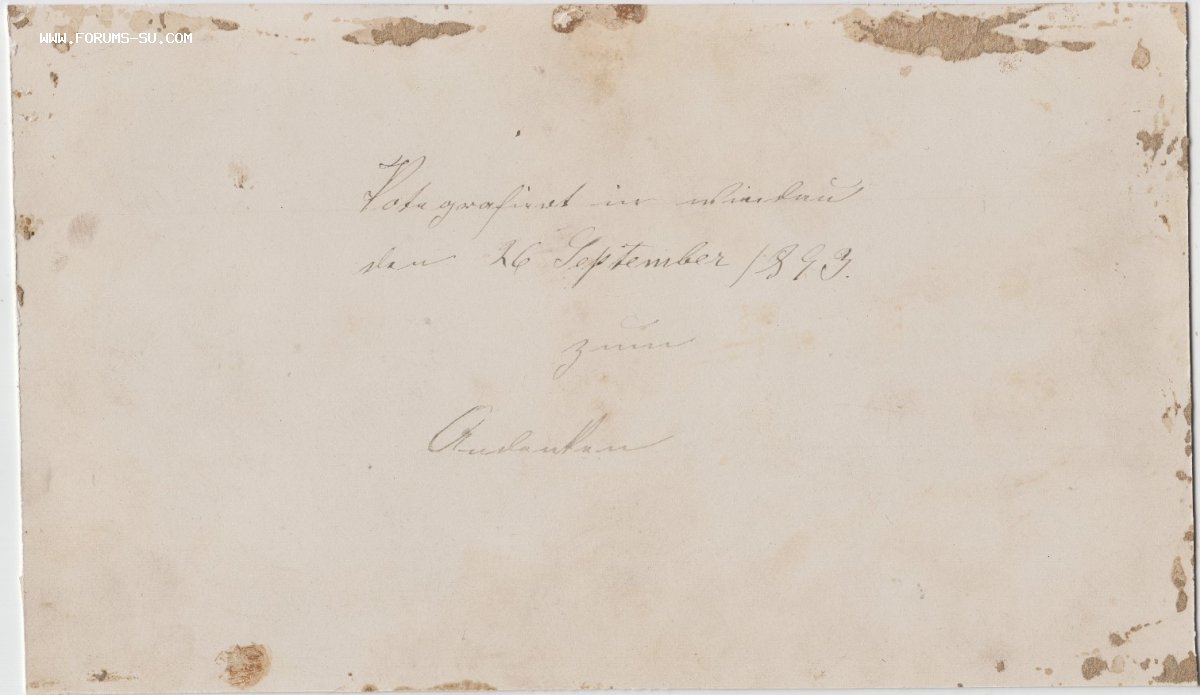 WWW.FORUMS-SU.COM
Potografirt in Windau
den 26 September 1893.
zum
Andenken